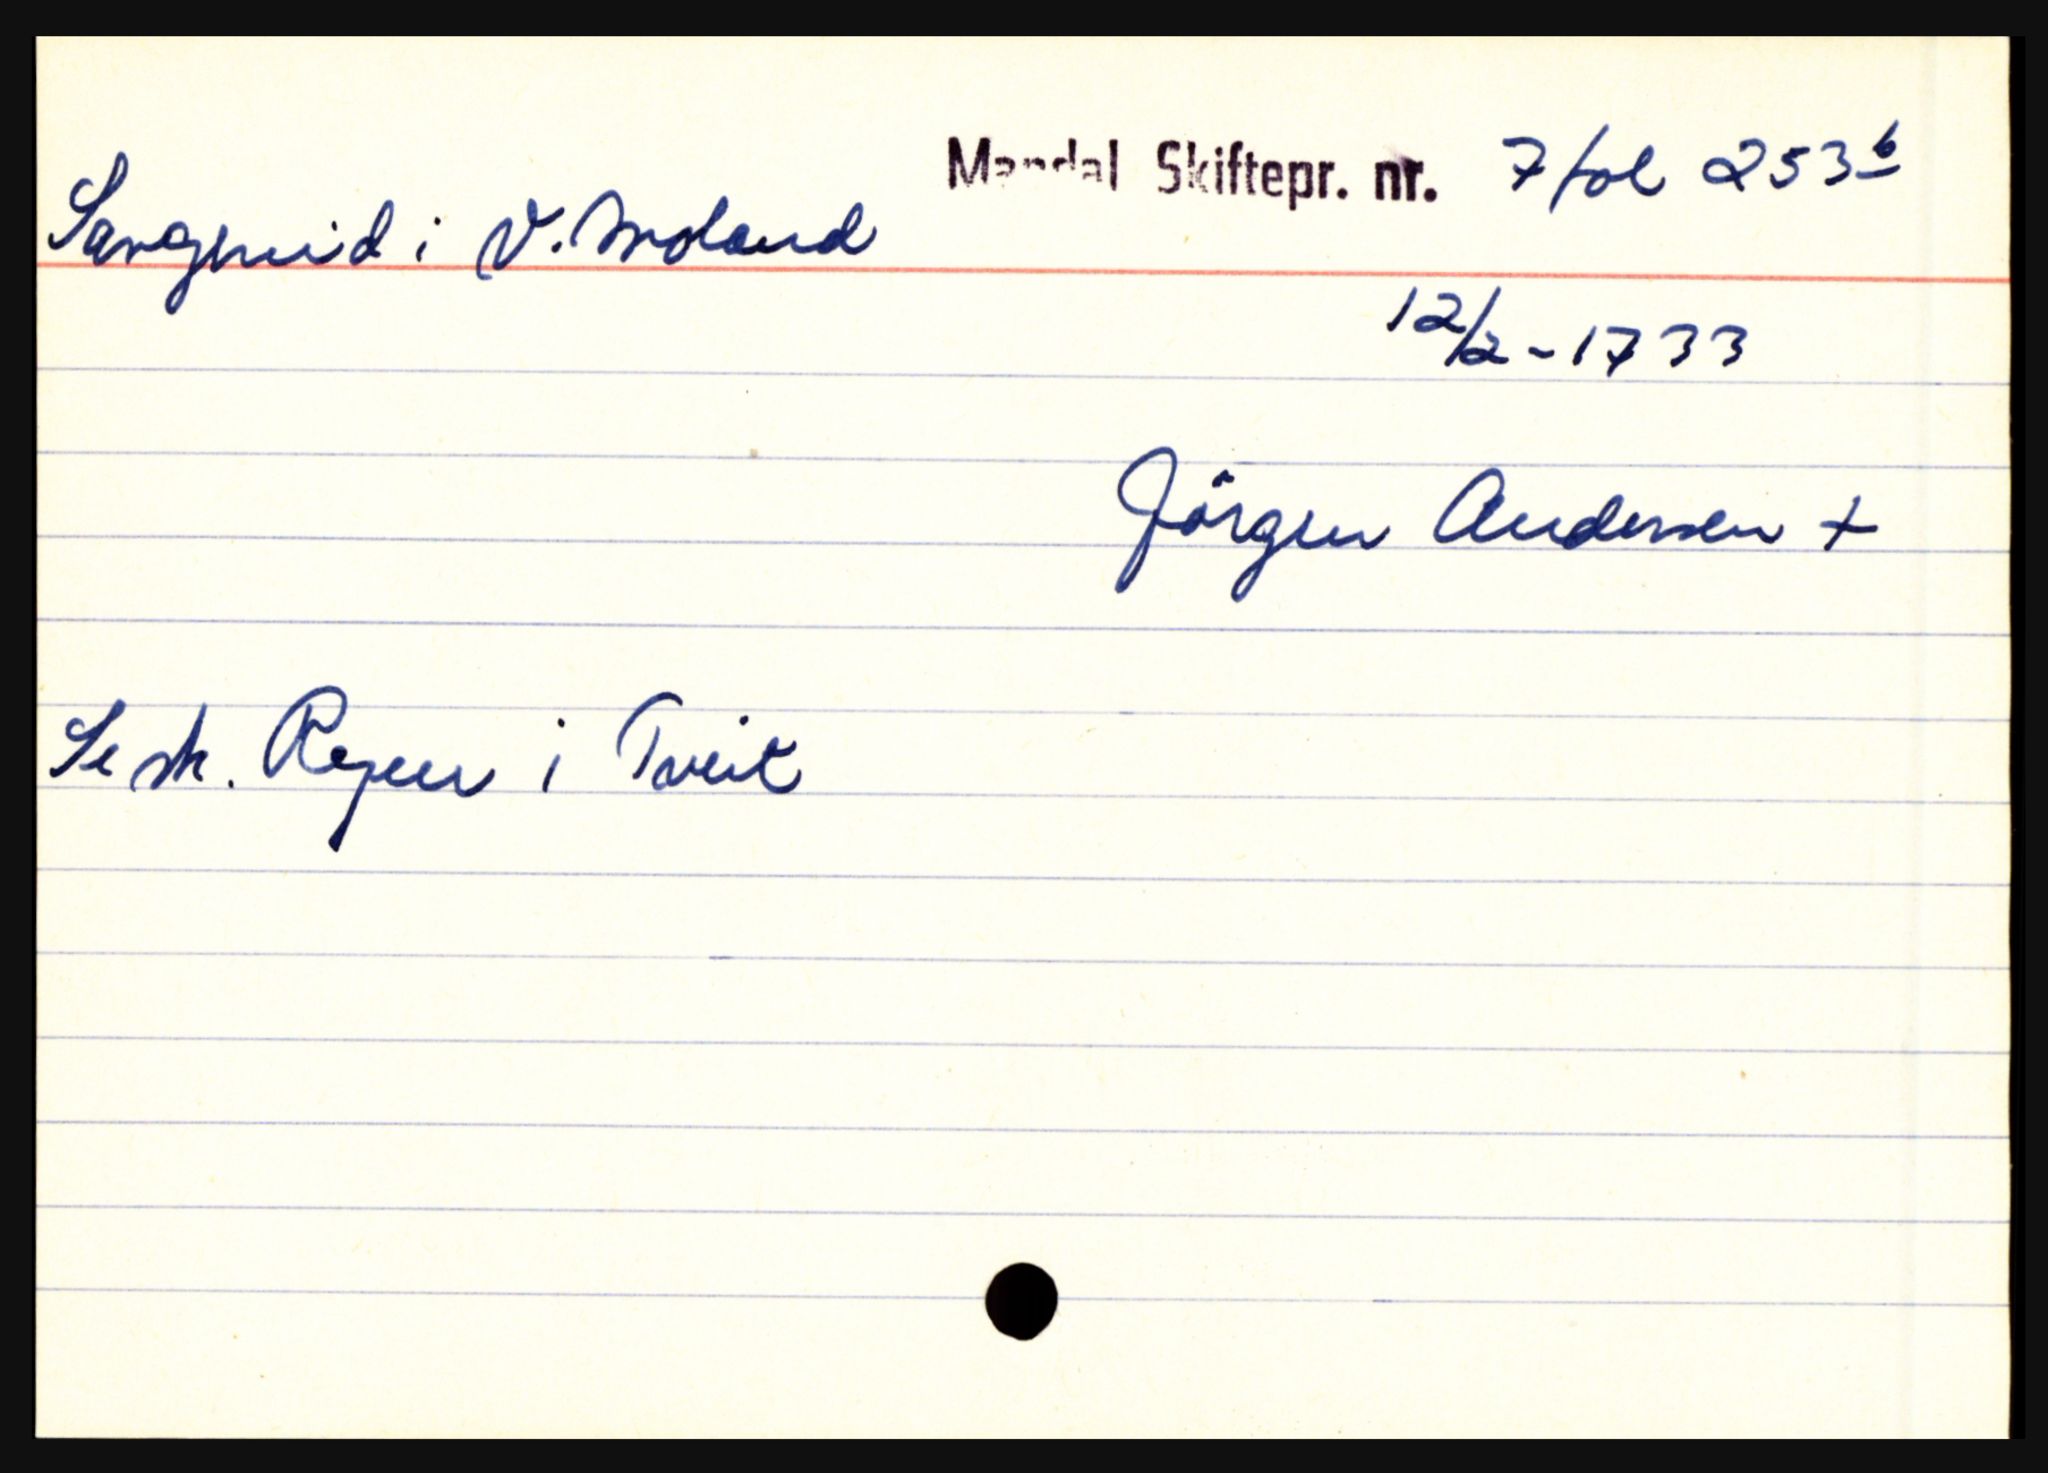 Mandal Skiftepr. nr. 7 fol 253b
Sangmid i V. Moland
12/2 - 1733
Jörgen Andersen +
Se sk. Reyer i Tveit